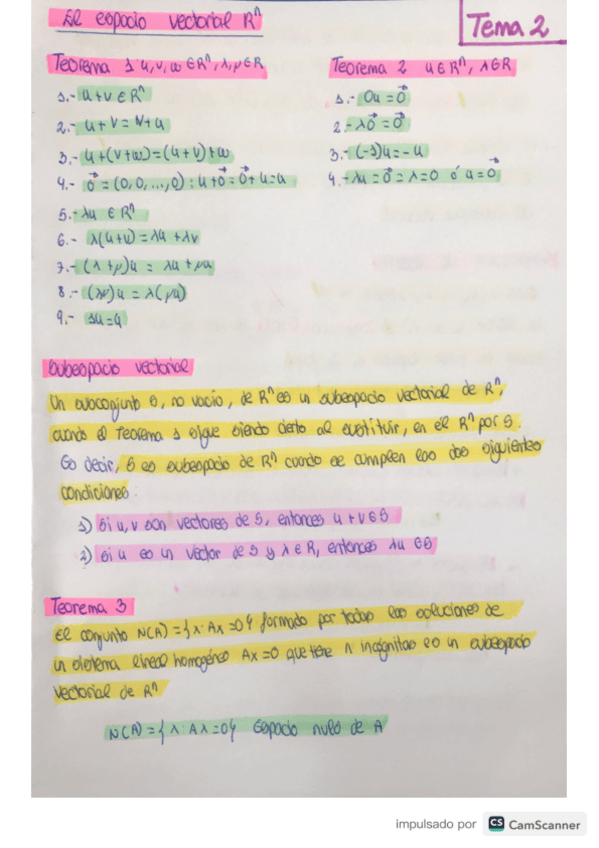 El espacio vectorial Rⁿ
Tema 2
Teorema 1 u,v,w ∈ Rⁿ, λ,μ ∈ R
1.- u+v ∈ Rⁿ
2.- u+v = v+u
3.- u+(v+w)=(u+v)+w
4.- 0⃗ = (0,0,...,0) : u+0⃗ = 0⃗+u = u
5.- λu ∈ Rⁿ
6.- λ(u+v) = λu + λv
7.- (λ+μ)u = λu + μu
8.- (λμ)u = λ(μu)
9.- 1u = u
Teorema 2 u ∈ Rⁿ, λ ∈ R
1.- 0u = 0⃗
2.- λ0⃗ = 0⃗
3.- (-1)u = -u
4.- λu = 0⃗ = λ = 0 ó u = 0⃗
Subespacio vectorial
Un subconjunto S, no vacio, de Rⁿ es un subespacio vectorial de Rⁿ,
cuando el Teorema 1 sigue siendo cierto al sustituir, en él Rⁿ por S.
Es decir, S es subespacio de Rⁿ cuando se cumplen las dos siguientes
condiciones:
1) Si u,v son vectores de S, entonces u+v ∈ S
2) Si u es un vector de S y λ ∈ R, entonces λu ∈ S
Teorema 3
El conjunto N(A) = { x : Ax = 0 } formado por todas las soluciones de
un sistema lineal homogéneo Ax=0 que tiene n incógnitas es un subespacio
vectorial de Rⁿ
N(A) = { x : Ax = 0 } Espacio nulo de A
impulsado por CS CamScanner